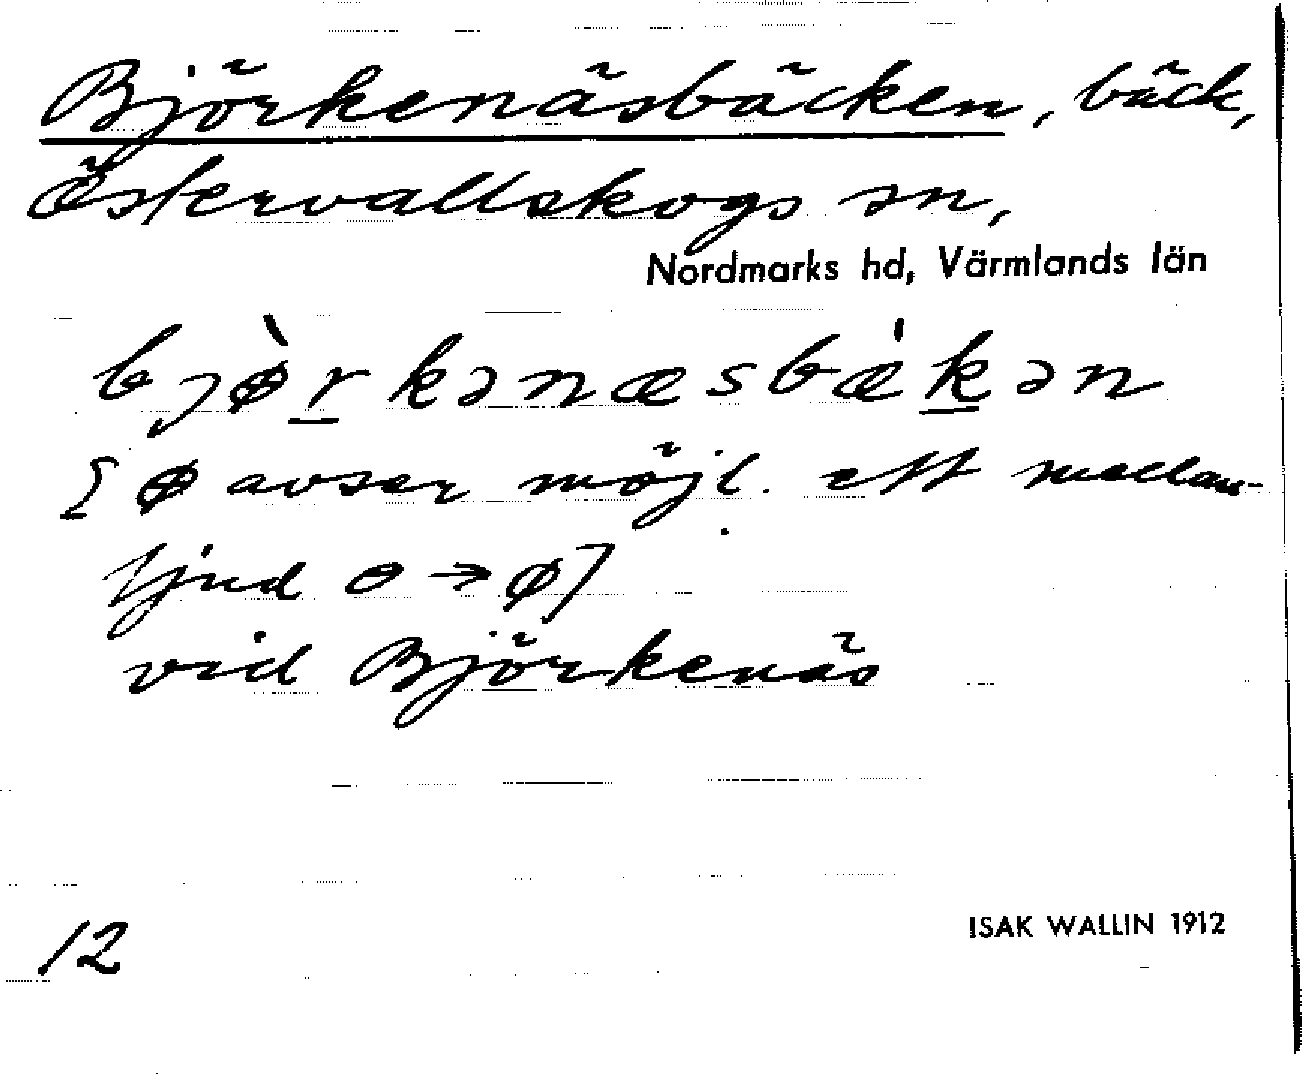 Björkenäsbäcken, bäck,
Östervallskogs sn,
Nordmarks hd, Värmlands län
bjø̀r̲kənæsbæ̀k̲ən
[ø avser möjl. ett mellan-
ljud ɵ→ø]
vid Björkenäs
12
ISAK WALLIN 1912